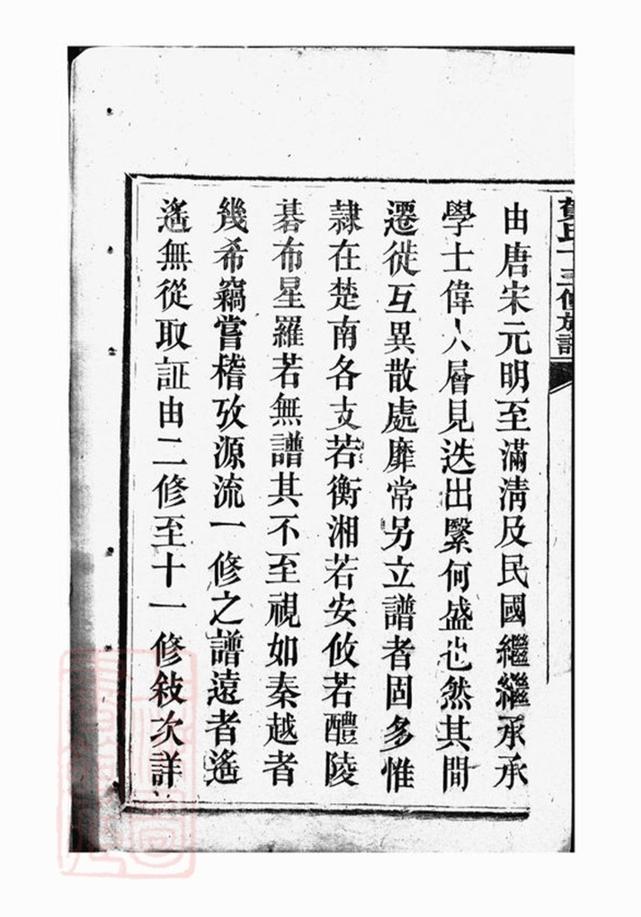 賀氏十三修族譜
由唐宋元明至滿清及民國繼繼承承
學士偉人層見迭出繄何盛也然其間
遷徙互異散處靡常另立譜者固多惟
隷在楚南各支若衡湘若安攸若醴陵
碁布星羅若無譜其不至視如秦越者
幾希竊嘗稽攷源流一修之譜遠者遙
遙無從取証由二修至十一修敍次詳